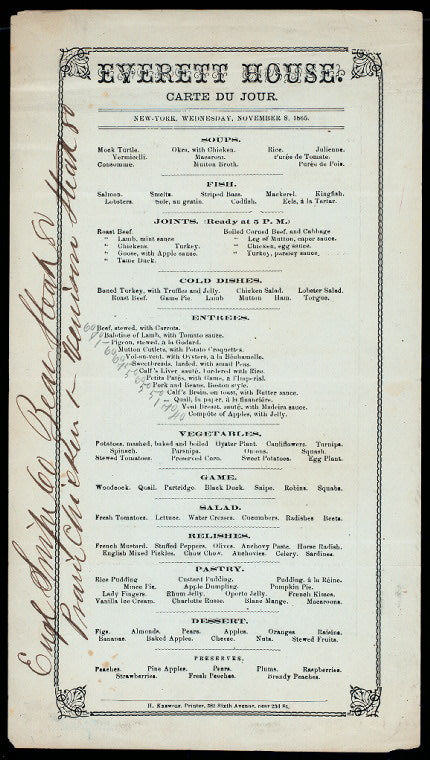 EVERETT HOUSE.
CARTE DU JOUR.
NEW-YORK, WEDNESDAY, NOVEMBER 8, 1865.
SOUPS.
Mock Turtle. Okra, with Chicken. Rice. Julienne.
Vermicelli. Macaroni. Purée de Tomate.
Consomme. Mutton Broth. Purée de Pois.
FISH.
Salmon. Smelts. Striped Bass. Mackerel. Kingfish.
Lobsters. Sole, au gratin. Codfish. Eels, à la Tartar.
JOINTS. (Ready at 5 P. M.)
Roast Beef. Boiled Corned Beef, and Cabbage
" Lamb, mint sauce " Leg of Mutton, caper sauce.
" Chickens. Turkey. " Chicken, egg sauce.
" Goose, with Apple sauce. " Turkey, parsley sauce.
" Tame Duck.
COLD DISHES.
Boned Turkey, with Truffles and Jelly. Chicken Salad. Lobster Salad.
Roast Beef. Game Pie. Lamb Mutton Ham. Tongue.
ENTREES.
Beef, stewed, with Carrots.
Balotine of Lamb, with Tomato sauce.
Pigeon, stewed, à la Godard.
Mutton Cutlets, with Potato Croquettes.
Vol-au-vent, with Oysters, à la Béchamelle.
Sweetbreads, larded, with small Peas.
Calf's Liver, sauté, bordered with Rice.
Petits Patés, with Game, à l'Imperial.
Pork and Beans, Boston style.
Calf's Brain, on toast, with Butter sauce.
Quail, in paper, à la financière.
Veal Breast, sauté, with Madeira sauce.
Compôte of Apples, with Jelly.
VEGETABLES.
Potatoes, mashed, baked and boiled Oyster Plant. Cauliflowers. Turnips.
Spinach. Parsnips. Onions. Squash.
Stewed Tomatoes. Preserved Corn. Sweet Potatoes. Egg Plant.
GAME.
Woodcock. Quail. Partridge. Black Duck. Snipe. Robins. Squabs.
SALAD.
Fresh Tomatoes. Lettuce. Water Cresses. Cucumbers. Radishes Beets.
RELISHES.
French Mustard. Stuffed Peppers. Olives. Anchovy Paste. Horse Radish.
English Mixed Pickles. Chow Chow. Anchovies. Celery. Sardines.
PASTRY.
Rice Pudding Custard Pudding. Pudding, à la Reine.
Mince Pie. Apple Dumpling. Pumpkin Pie.
Lady Fingers. Rhum Jelly. Oporto Jelly. French Kisses.
Vanilla Ice Cream. Charlotte Russe. Blanc Mange. Macaroons.
DESSERT.
Figs. Almonds. Pears. Apples. Oranges. Raisins.
Bananas. Baked Apples. Cheese. Nuts. Stewed Fruits.
PRESERVES.
Peaches. Pine Apples. Pears. Plums. Raspberries.
Strawberries. Fresh Peaches. Brandy Peaches.
Printer, 381 Sixth Avenue, near 23d St.
Engl Snipe Bear Steak
Prairie Chicken Venison Steak